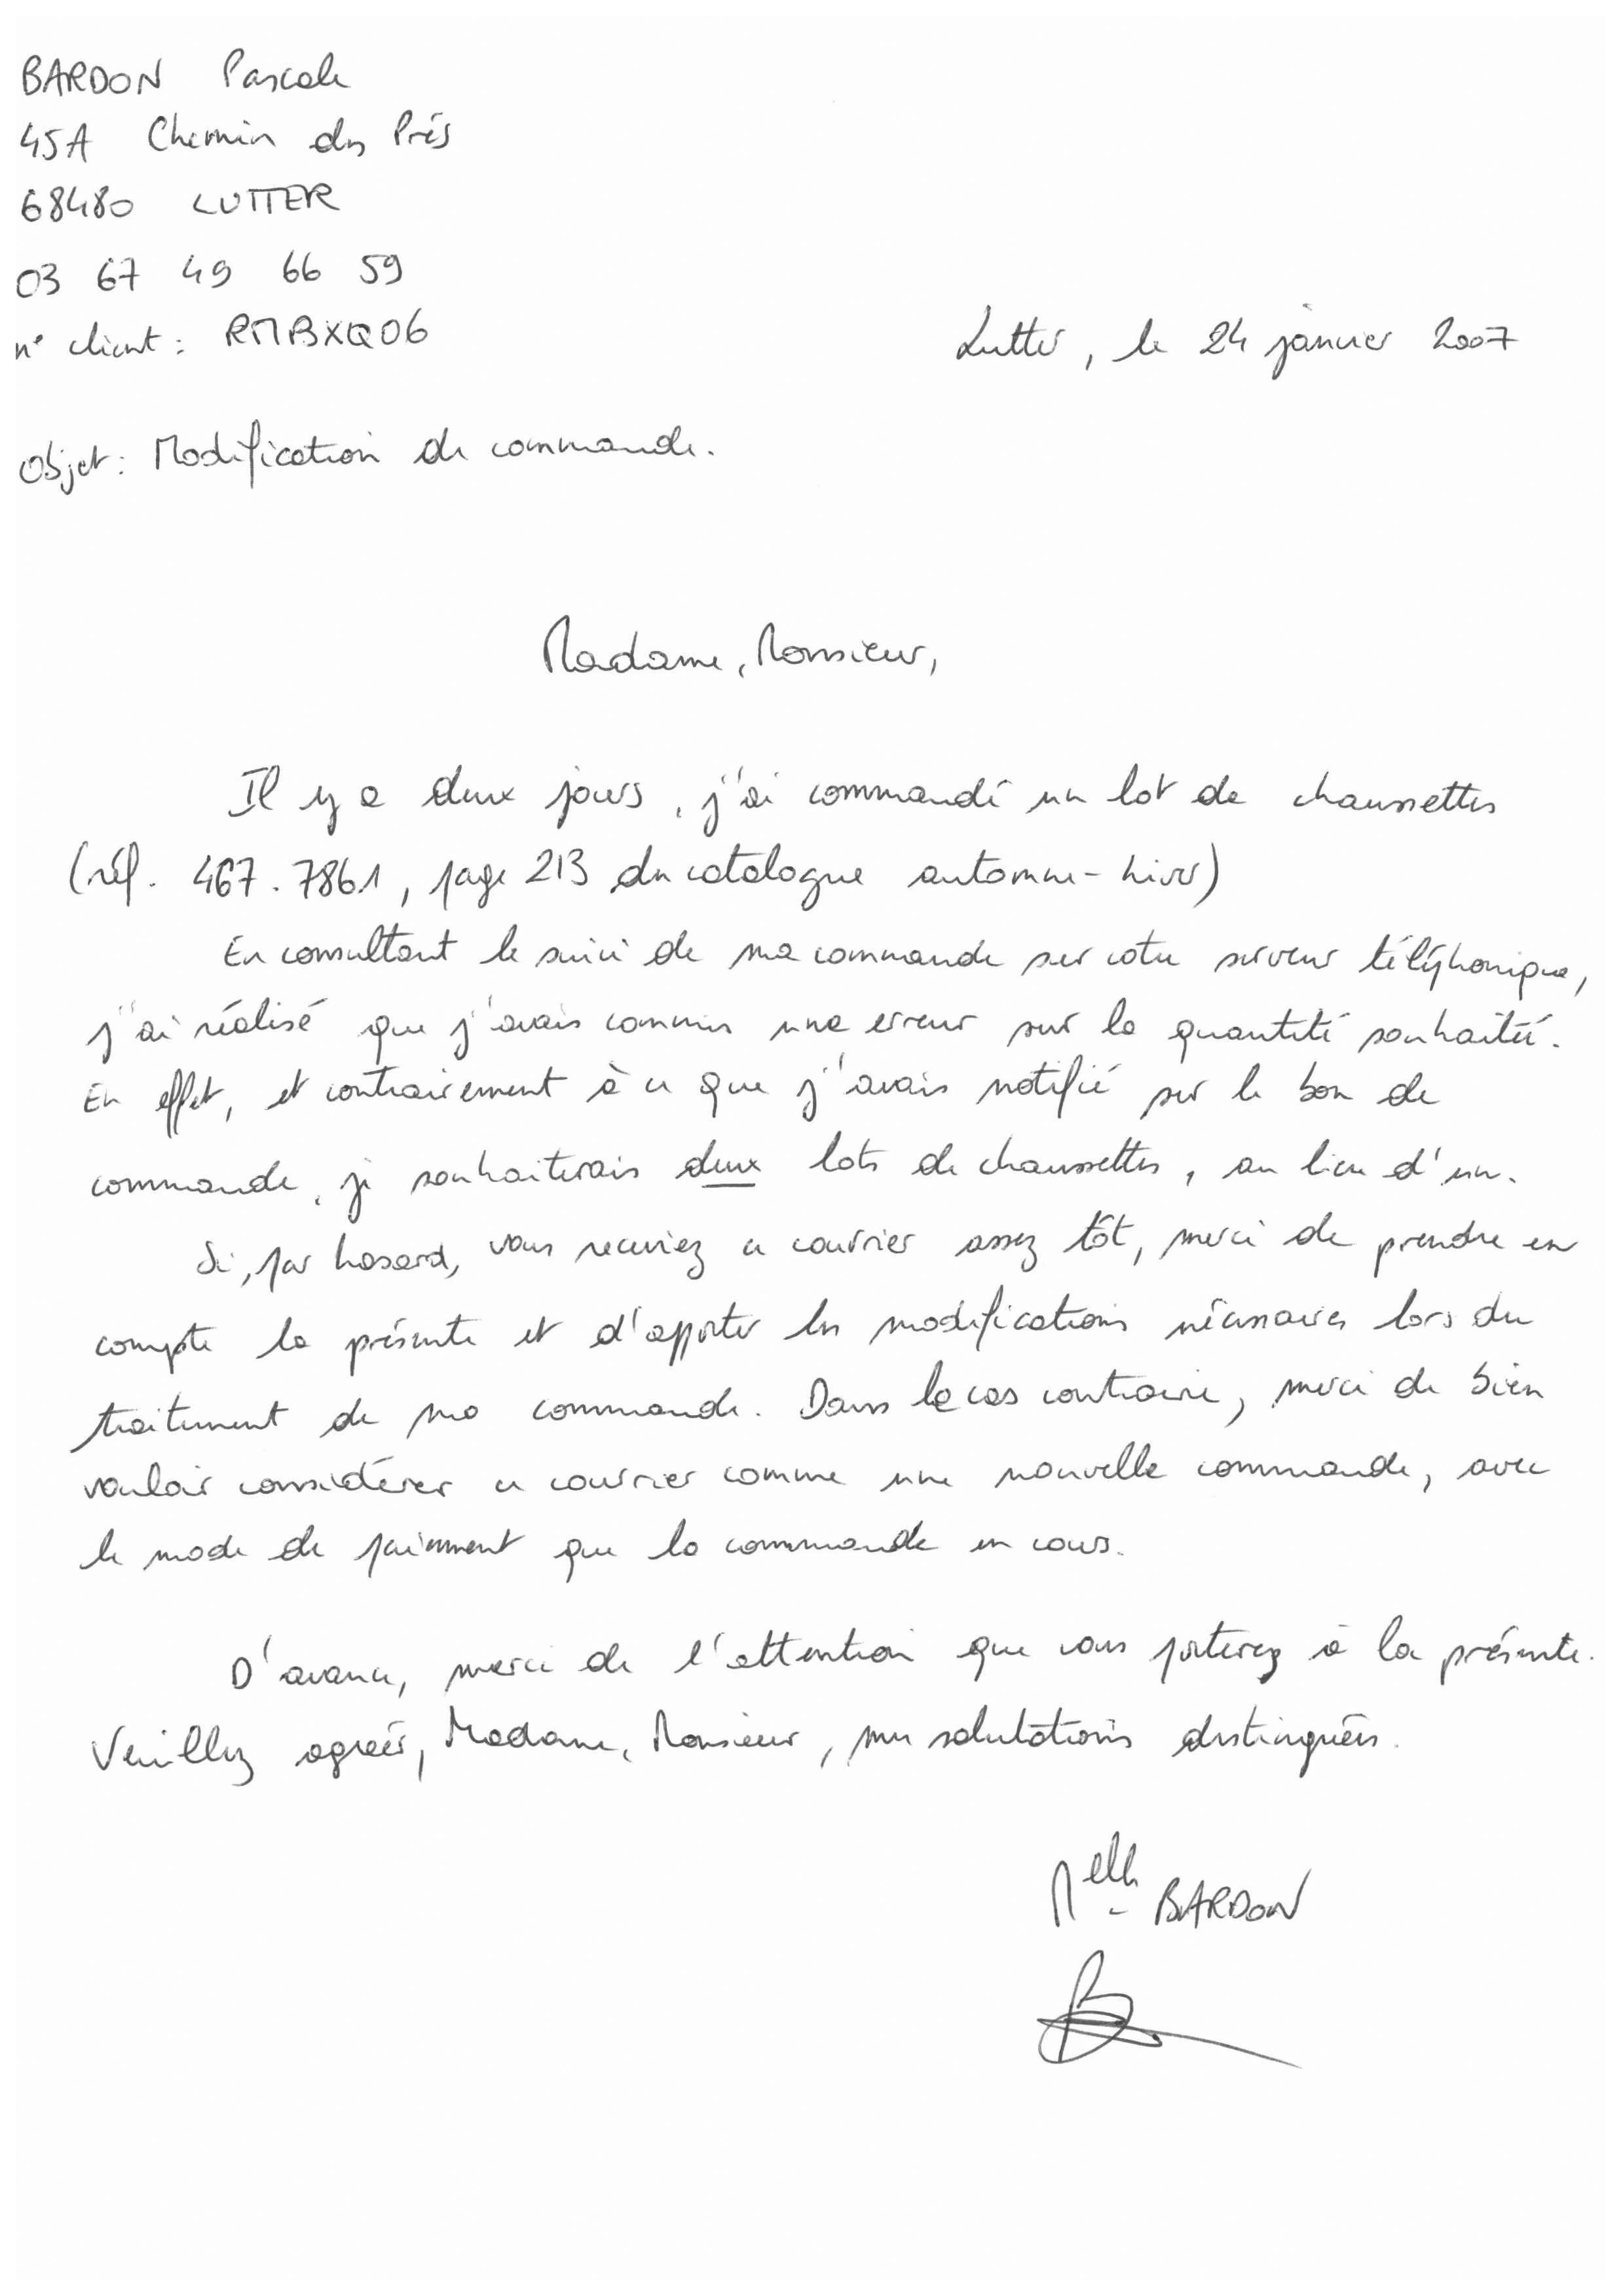 BARDON Pascale
45A Chemin des Prés
68480 LUTTER
03 67 49 66 59
n° client : RMBXQ06
Lutter, le 24 janvier 2007
Objet : Modification de commande.
Madame, Monsieur,
Il y a deux jours, j'ai commandé un lot de chaussettes
(réf. 467.7861, page 213 du catalogue automne-hiver)
En consultant le suivi de ma commande sur votre serveur téléphonique,
j'ai réalisé que j'avais commis une erreur sur la quantité souhaitée.
En effet, et contrairement à ce que j'avais notifié sur le bon de
commande, je souhaiterais deux lots de chaussettes, au lieu d'un.
Si, par hasard, vous receviez ce courrier assez tôt, merci de prendre en
compte la présente et d'apporter les modifications nécessaires lors du
traitement de ma commande. Dans le cas contraire, merci de bien
vouloir considérer ce courrier comme une nouvelle commande, avec
le mode de paiement que la commande en cours.
D'avance, merci de l'attention que vous porterez à la présente.
Veuillez agréer, Madame, Monsieur, mes salutations distinguées.
Melle BARDON